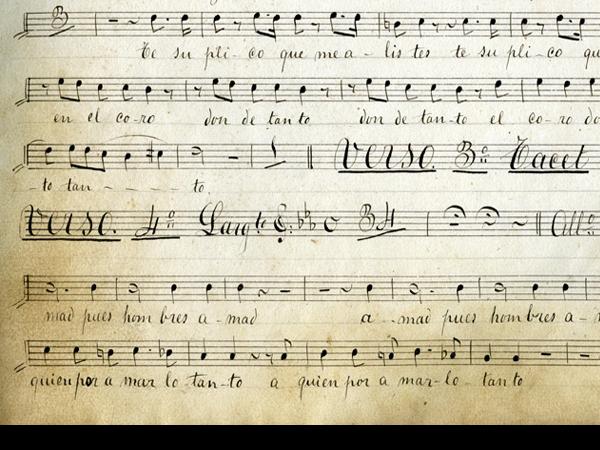 8
te su pli - co que me a - lis tes te su pli - co qu
en el co - ro don de tan to don de tan - to el co - ro do
Verso. 3º Tacet
- to tan - - - - to.
Verso. 4º Largto C 34 Allo
mad pues hom bres a - mad a - mad pues hom bres a -
quien por a mar lo tan - to a quien por a mar - lo - tan to